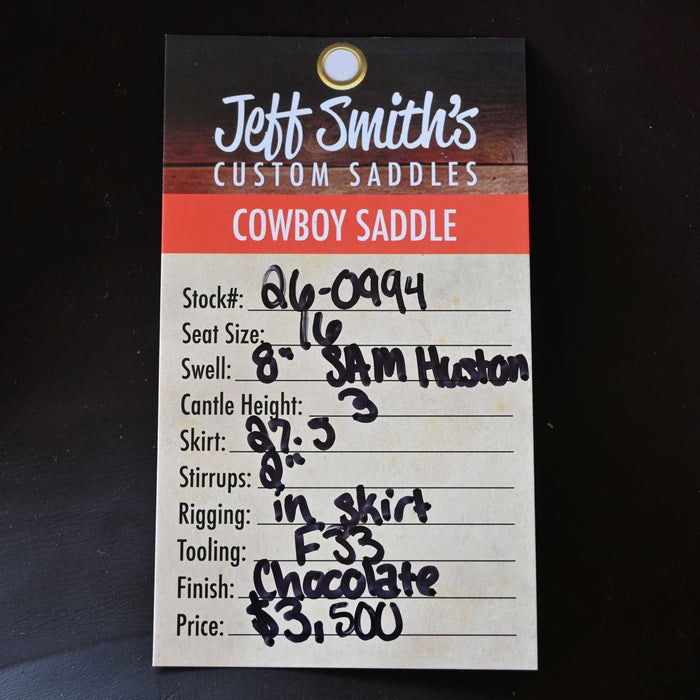 Jeff Smith's
CUSTOM SADDLES
COWBOY SADDLE
Stock#: 26-0994
Seat Size: 16
Swell: 8" SAM Huston
Cantle Height: 3
Skirt: 27.5
Stirrups: 2"
Rigging: in skirt
Tooling: F33
Finish: Chocolate
Price: $3,500